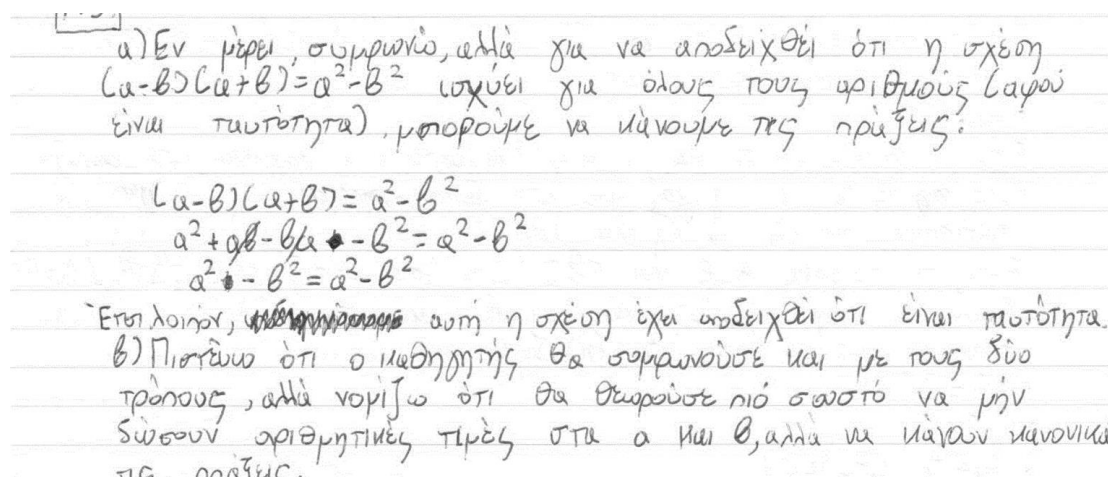 α) Εν μέρει, συμφωνώ, αλλά για να αποδειχθεί ότι η σχέση
(α-β)(α+β)=α²-β² ισχύει για όλους τους αριθμούς (αφού
είναι ταυτότητα), μπορούμε να κάνουμε τις πράξεις:
(α-β)(α+β)=α²-β²
α²+αβ-βα-β²=α²-β²
α²-β²=α²-β²
Έτσι λοιπόν, αυτή η σχέση έχει αποδειχθεί ότι είναι ταυτότητα.
β) Πιστεύω ότι ο καθηγητής θα συμφωνούσε και με τους δύο
τρόπους, αλλά νομίζω ότι θα θεωρούσε πιό σωστό να μήν
δώσουν αριθμητικές τιμές στα α και β, αλλά να κάνουν κανονικά
τις πράξεις.